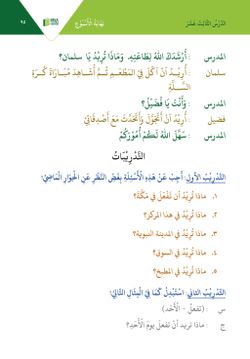 الدَّرْسُ الثَّالِثَ عَشَرَ
نِهَايَةُ الْأُسْبُوعِ
٩٥
المدرس : أَرْشَدَكَ اللهُ لِطَاعَتِهِ. وَمَاذَا تُرِيدُ يَا سلمان؟
سلمان : أُرِيدُ أَنْ آكُلَ فِي الْمَطْعَمِ ثُمَّ أُشَاهِدَ مُبَارَاةَ كُرَةِ
السَّلَّةِ
المدرس : وَأَنْتَ يَا فُضَيْلُ؟
فضيل : أُرِيدُ أَنْ أَتَجَوَّلَ وَأَتَحَدَّثَ مَعَ أَصْدِقَائِي
المدرس : سَهَّلَ اللهُ لَكُمْ أُمُورَكُمْ
التَّدْرِيبَاتُ
التَّدْرِيبُ الأَوَّلُ: أَجِبْ عَنْ هَذِهِ الْأَسْئِلَةِ بِغَضِّ النَّظَرِ عَنِ الْحِوَارِ الْمَاضِيْ:
١. ماذا تُرِيْدُ أن تَفْعَلَ في مَكَّةَ؟
٢. ماذا تُرِيْدُ في هذا المركز؟
٣. ماذا تُرِيْدُ في المدينة النبوية؟
٤. ماذا تُرِيْدُ في السوق؟
٥. ماذا تُرِيْدُ في المطبخ؟
التَّدْرِيْبُ الثاني: اسْتَبْدِلْ كَمَا فِيْ الْمِثَالِ التَّالِيْ:
س : (تفعل - الْأَحَد)
ج : ماذا تريد أنْ تفعلَ يومَ الْأَحَدِ؟